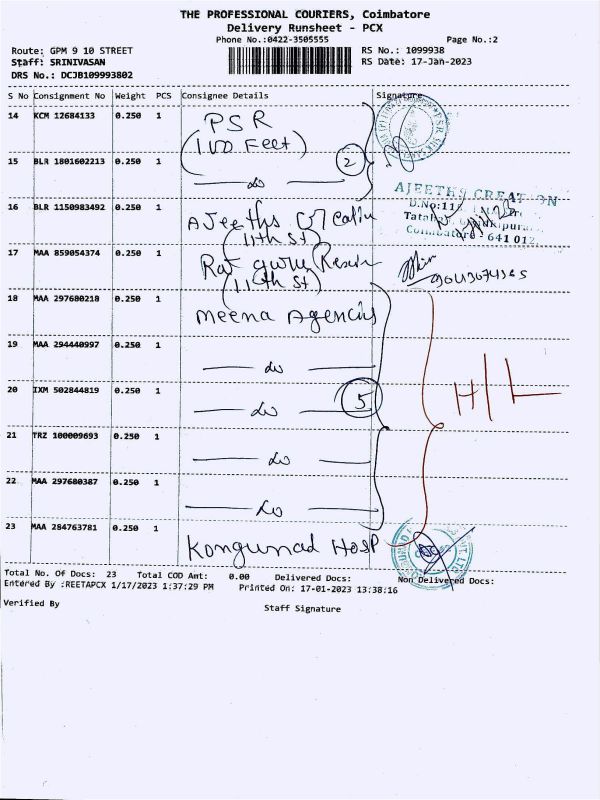 THE PROFESSIONAL COURIERS, Coimbatore
Delivery Runsheet - PCX
Phone No.:0422-3505555
Page No.:2
Route: GPM 9 10 STREET
RS No.: 1099938
Staff: SRINIVASAN
RS Date: 17-Jan-2023
DRS No.: DCJB109993802
S No Consignment No Weight PCS Consignee Details Signature
14 KCM 12684133 0.250 1 PSR
(100 Feet)
15 BLR 1801602213 0.250 1 2
Do
16 BLR 1150983492 0.250 1 Ajeeths
(11th St)
AJEETHS CREATION
D.No:11
Coimbatore - 641 012
17 MAA 859054374 0.250 1
(11th St)
18 MAA 297680218 0.250 1 Meena Agencies
19 MAA 294440997 0.250 1
Do
20 IXM 502844819 0.250 1 5
Do
H/L
21 TRZ 100009693 0.250 1
Do
22 MAA 297680387 0.250 1
Do
23 MAA 284763781 0.250 1
Kongunad Hosp
Total No. Of Docs: 23 Total COD Amt: 0.00 Delivered Docs: Non Delivered Docs:
Entered By :REETAPCX 1/17/2023 1:37:29 PM Printed On: 17-01-2023 13:38:16
Verified By
Staff Signature